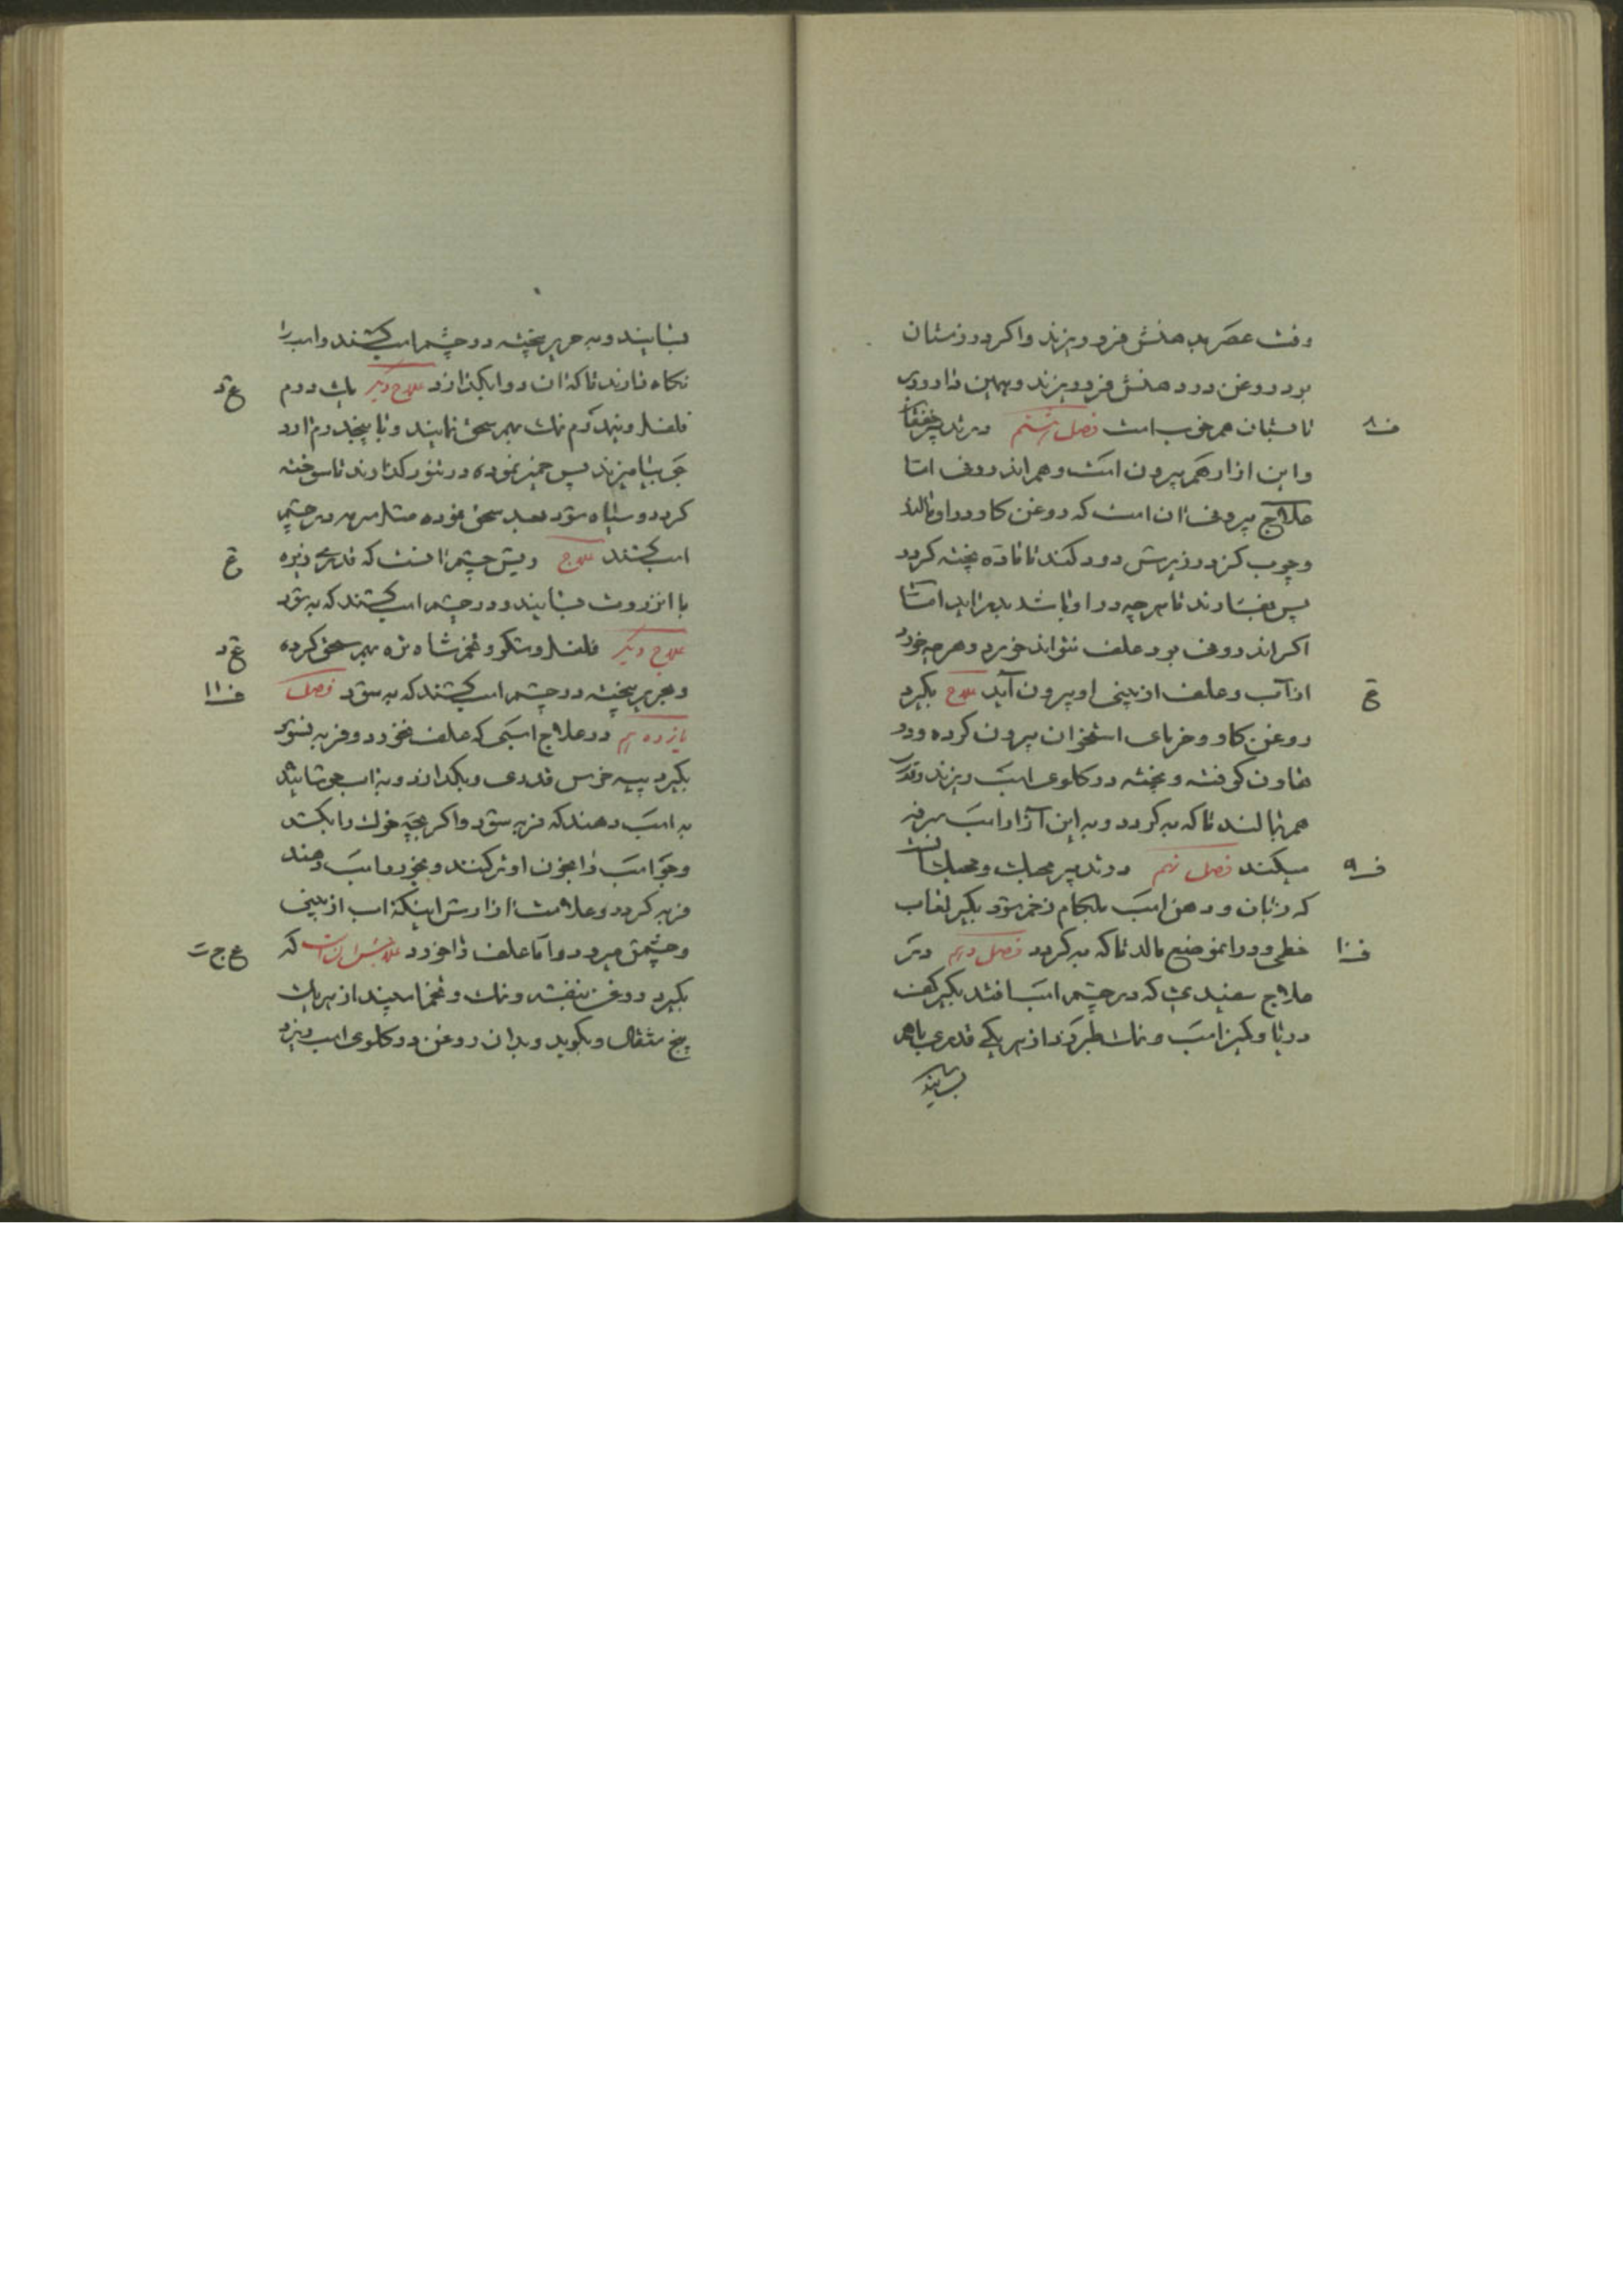 وقت عصر بدهنش فرو ریزند واکر در زمستان
بود روغن در دهنش فرو ریزند وبهمین داروی
تابستان هم خوب است فصل هشتم در تدبیر خفقان
ف ٨
واین ازار هم بیرون است وهم اندرونی اما
علاج بیرونی ان است که روغن کاو در او مالند
وچوب کز در زیرش دود کنند تا ماده پخته کردد
پس بفشارند تا هرچه در او باشد بدر اید اما
اکر اندرونی بود علف نتواند خورد وهرچه خورد
از آب وعلف از بینی او بیرون آید علاج بکیرد
ع
روغن کاو وخرمای استخوان بیرون کرده ودر
هاون کوفته وپخته در کلوی اسب ریزند وقدری
هم بمالند تا که به کردد وبه این آزار اسب سرفه
میکند فصل نهم در تدبیر
ف ٩
که زبان ودهن اسب بلجام زخم شود بکیر لعاب
خطمی ودر انموضع مالد تا که به کردد فصل دهم در
ف ١٠
علاج سفیدی که در چشم اسب افتد بکیر کف
دریا وکمیز اسب ونمك طبرزد از هر یکی قدری باهم
بسایند
بسایند وبه حریر بیخته در چشم اسب کشند واسب را
نکاه دارند تا که ان دوا بکدازد علاج دیکر یك درم
ع د
فلفل ونیم درم نمك بهم سحق نمایند وبا پنج درم ارد
جو بیامیزند پس خمیر نموده در تنور کذارند تا سوخته
کردد وسیاه شود بعد سحق نموده مثل سرمه در چشم
اسب کشند علاج ریش چشم انست که قدری زیره
ع
با انزروت بسایند ودر چشم اسب کشند که به شود
علاج دیکر فلفل وشکر وتخم شاه تره بهم سحق کرده
ع د
وبحریر بیخته در چشم اسب کشند که به شود فصل
ف ١١
یازدهم در علاج اسبی که علف نخورد وفربه نشود
بکیرد پیه خرس قدری وبکدازد وبه اب جوشانیده
به اسب دهند که فربه شود واکر بچه خوك را بکشد
وجو اسب را بخون او تر کنند وبخورد اسب دهند
فربه کردد وعلامت ازارش اینکه اب از بینی
وچشمش میرود واما علف را خورد علاجش ان است که
ع ج
بکیرد روغن بنفشه ونمك وتخم اسپند از هر یك
پنج مثقال وبکوبد وبدان روغن در کلوی اسب ریزد